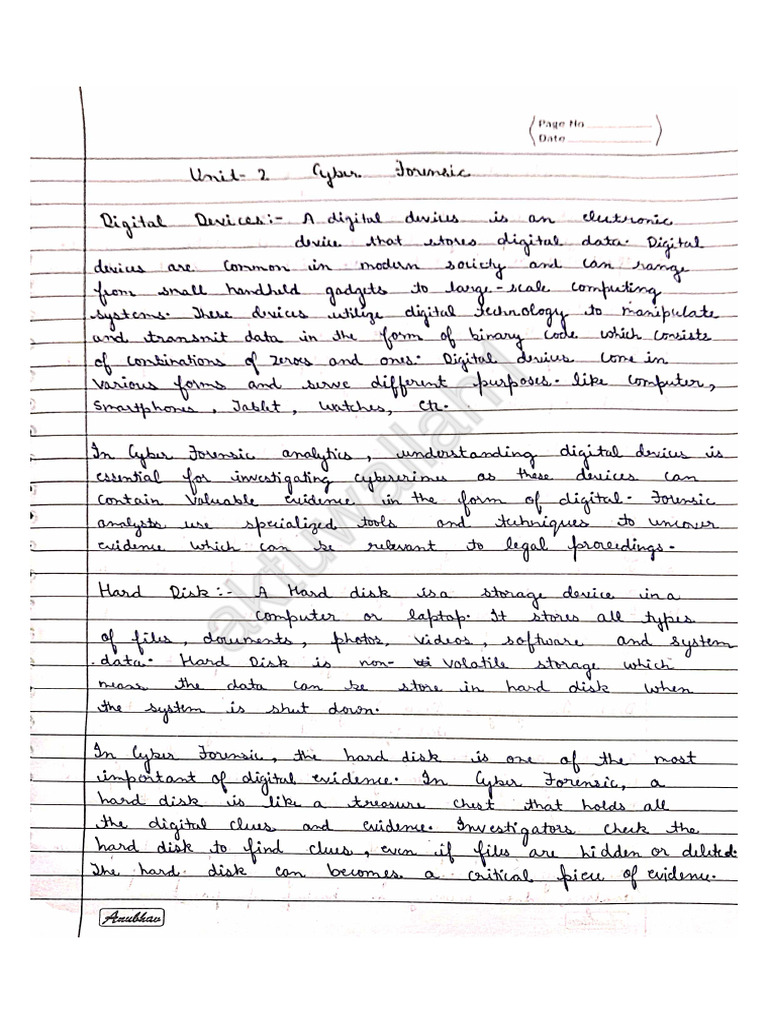 Page No
Date
Unit- 2 Cyber Forensic
Digital Devices:- A digital devices is an electronic
device that stores digital data. Digital
devices are common in modern society and can range
from small handheld gadgets to large-scale computing
systems. These devices utilize digital technology to manipulate
and transmit data in the form of binary code which consists
of combinations of zeros and ones. Digital devices come in
various forms and serve different purposes. like computer,
Smartphones, Tablet, watches, etc.
In Cyber Forensic analytics, understanding digital devices is
essential for investigating cybercrimes as these devices can
contain valuable evidence in the form of digital. Forensic
analysts use specialized tools and techniques to uncover
evidence which can be relevant to legal proceedings.
Hard Disk:- A Hard disk is a storage device in a
computer or laptop. It stores all types
of files, documents, photos, videos, software and system
data. Hard Disk is non- volatile storage which
means the data can be store in hard disk when
the system is shut down.
In Cyber Forensic, the hard disk is one of the most
important of digital evidence. In Cyber Forensic, a
hard disk is like a treasure chest that holds all
the digital clues and evidence. Investigators check the
hard disk to find clues, even if files are hidden or deleted.
The hard disk can becomes a critical piece of evidence.
Anubhav
aktuwallah1